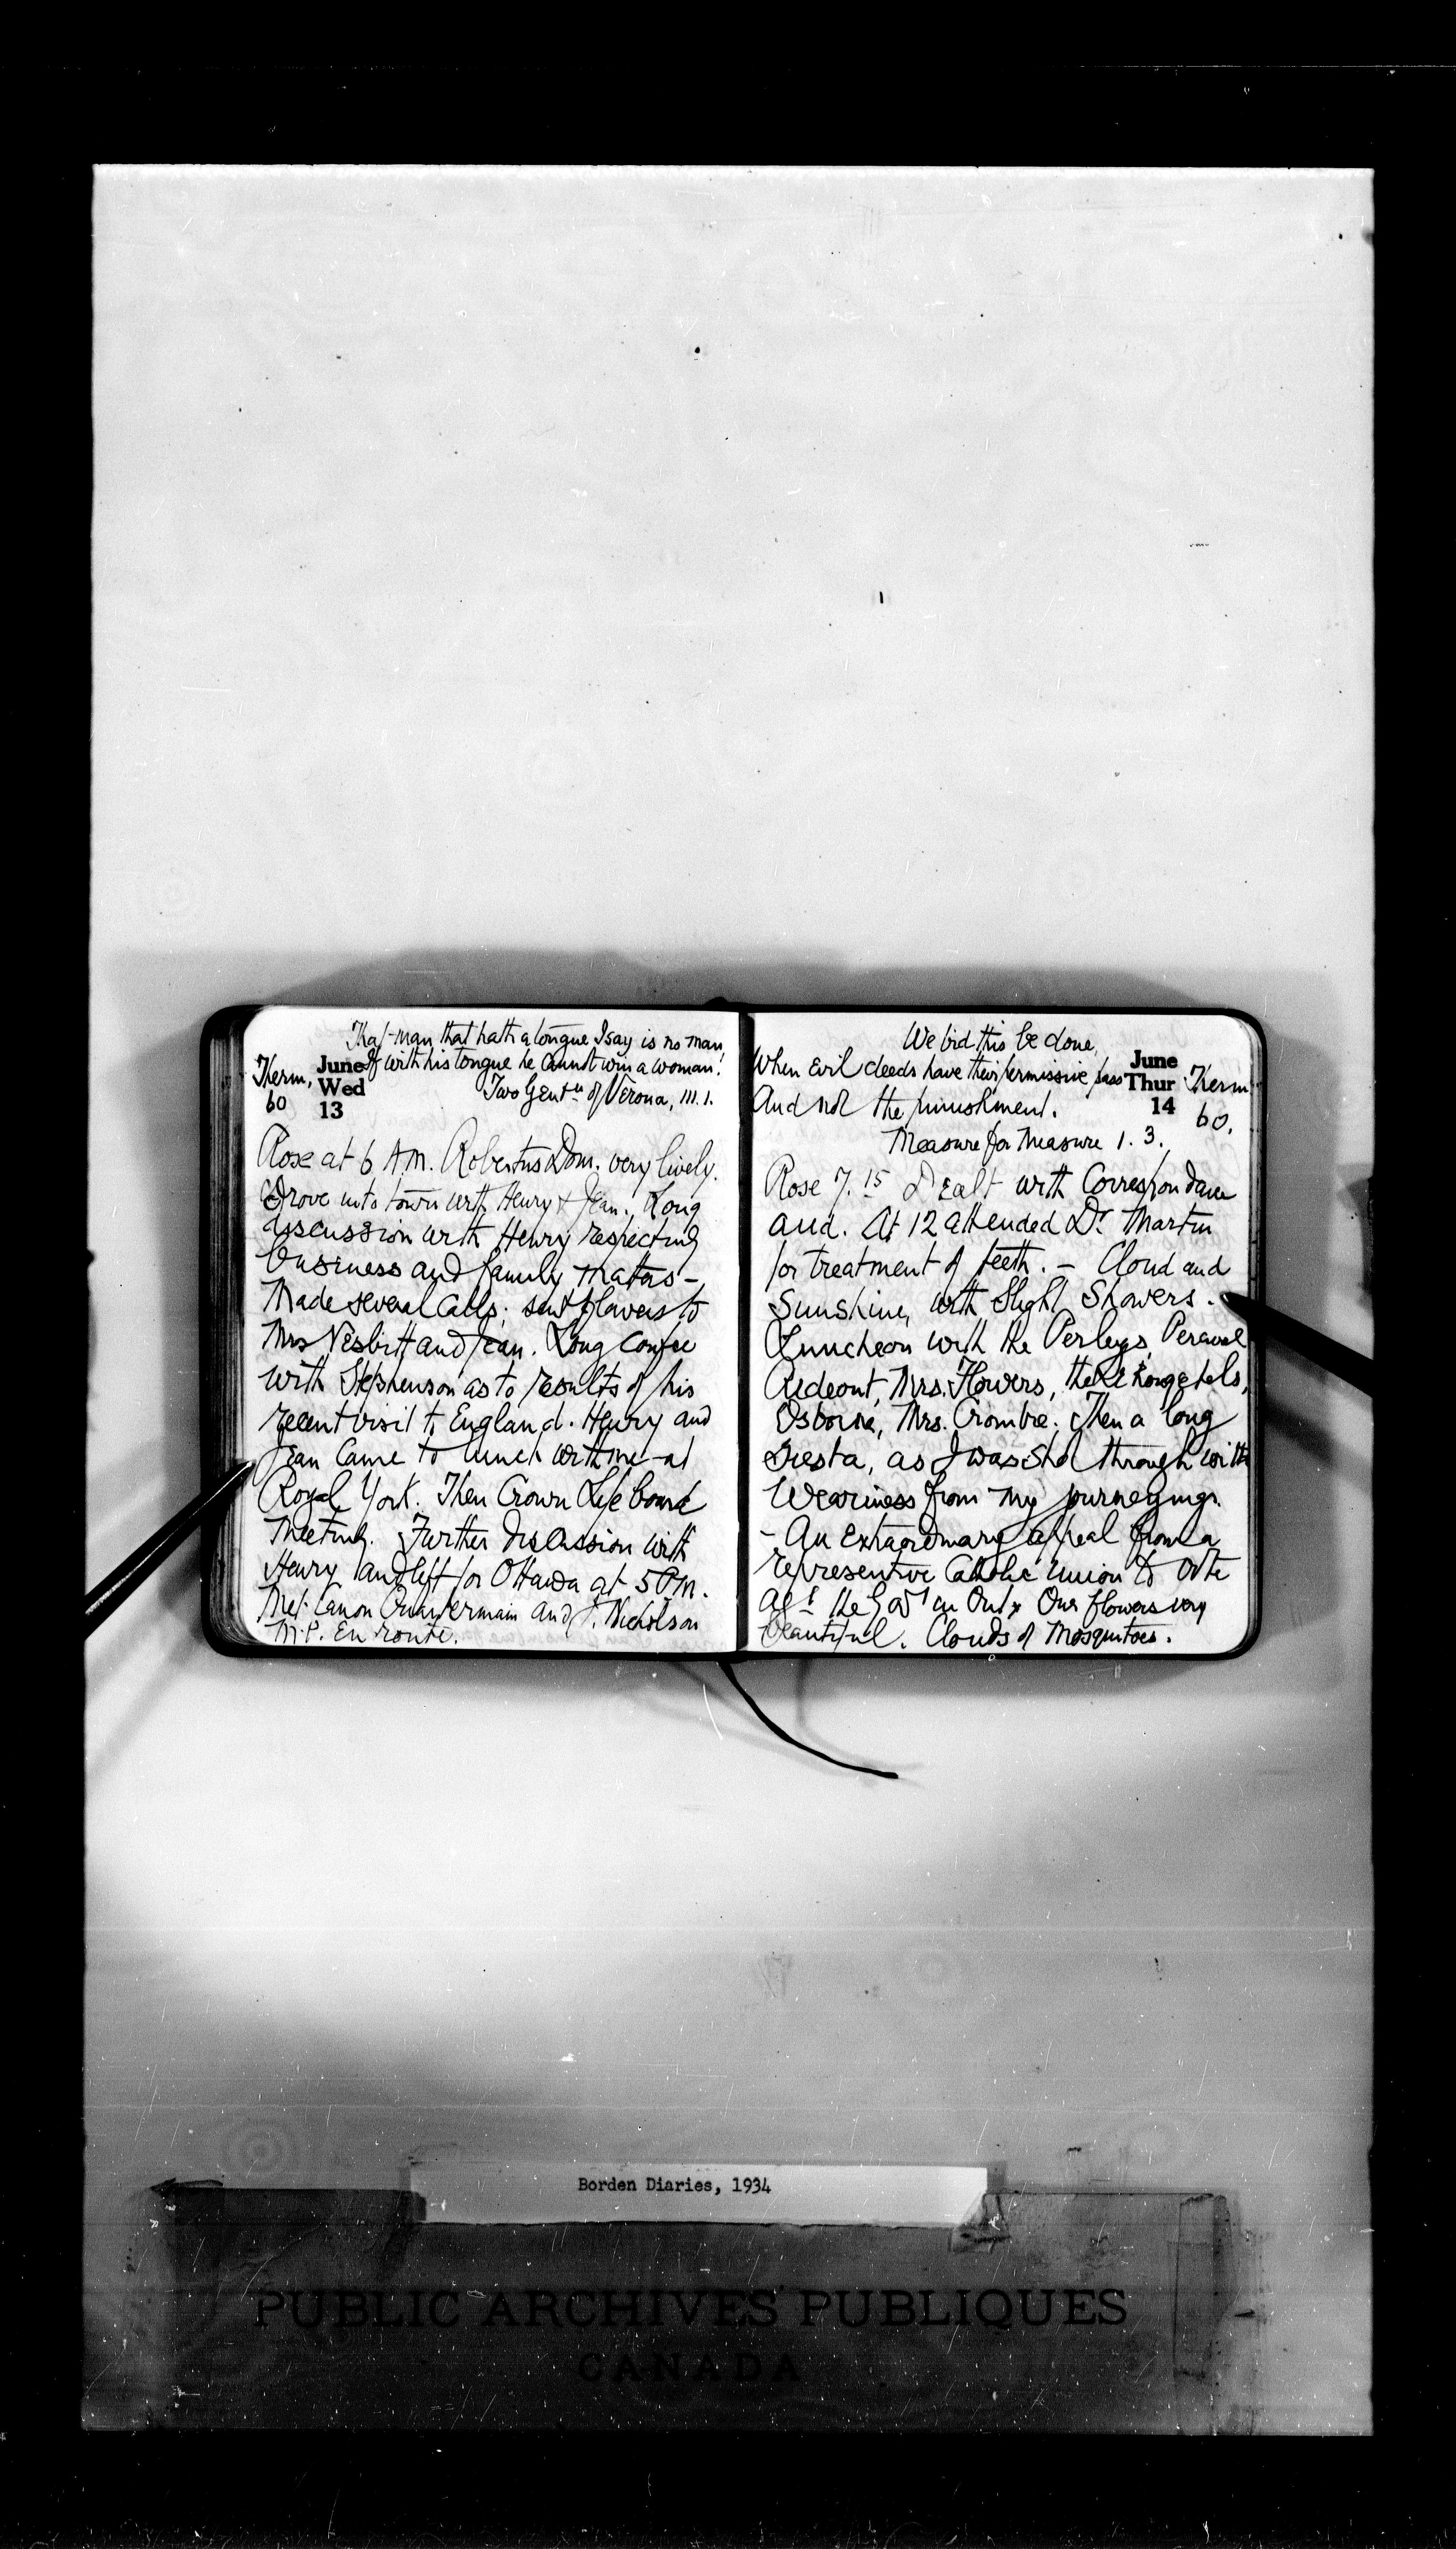 That man that hath a tongue I say is no man,
If with his tongue he cannot win a woman!
Two Gentn of Verona, III. 1.
Therm,
60
June
Wed
13
Rose at 6 A.M. Robertus Dom. very lively.
Drove into town with Henry & Jean. Long
discussion with Henry respecting
business and family matters –
Made several calls; sent flowers to
Mrs Nesbitt and Jean. Long confce
with Stephenson as to results of his
recent visit to England. Henry and
Jean came to lunch with me at
Royal York. Then Crown Life board
meeting. Further discussion with
Henry and left for Ottawa at 5 P.M.
Met Canon Quartermain and J. Nicholson
M.P. En route.
We bid this be done,
When Evil deeds have their permissive pass
And not the punishment.
Measure for Measure 1. 3.
June
Thur
14
Therm
60.
Rose 7.15 Dealt with Correspondence
and. At 12 attended Dr Martin
for treatment of teeth. – Cloud and
Sunshine, with Slight Showers. –
Luncheon with the Perleys, Percival
Rideout, Mrs. Flowers, the
Osborne, Mrs. Crombie. Then a long
Siesta, as I was shot through with
Weariness from my journeyings.
– An Extraordinary appeal from a
representive Catholic Union to vote
agst the Govt in Ont. Our flowers very
beautiful. Clouds of Mosquitoes.
Borden Diaries, 1934
PUBLIC ARCHIVES PUBLIQUES
CANADA